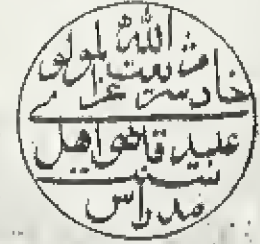 الله
شریعت مولوی
خادم غراے
عبید قاضی اهل
سنت
مدراس